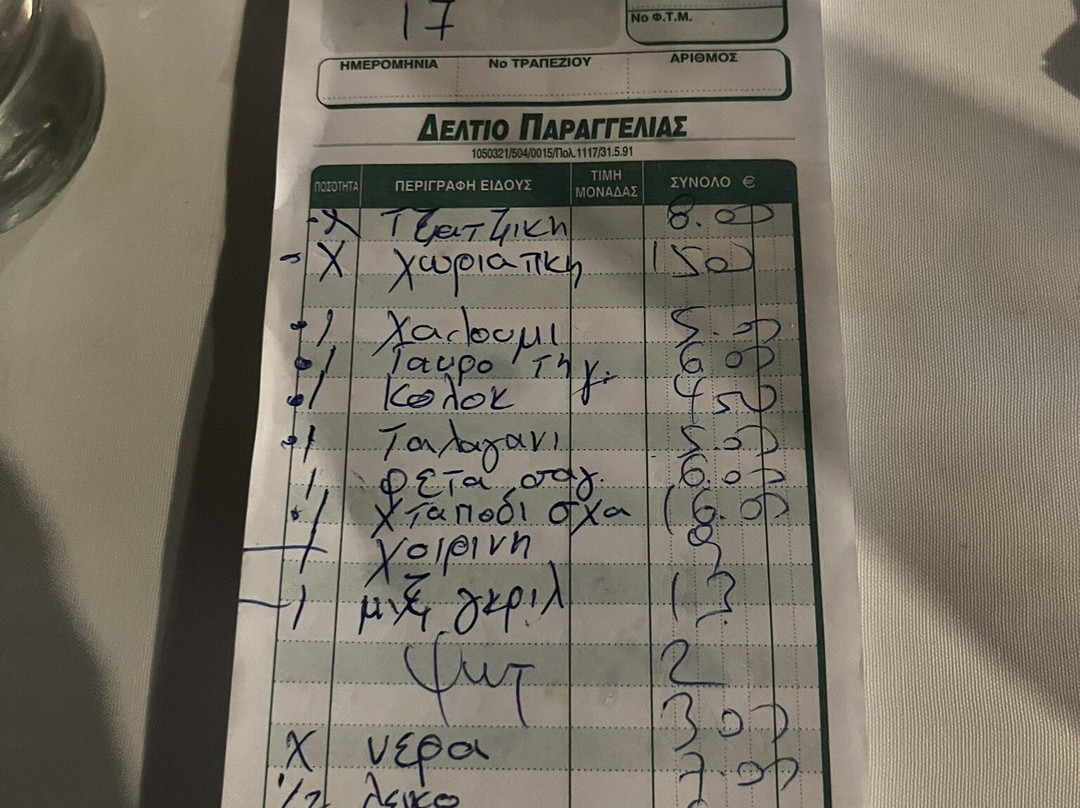 17
Νο Φ.Τ.Μ.
ΗΜΕΡΟΜΗΝΙΑ Νο ΤΡΑΠΕΖΙΟΥ ΑΡΙΘΜΟΣ
ΔΕΛΤΙΟ ΠΑΡΑΓΓΕΛΙΑΣ
1050321/504/0015/Πολ.1117/31.5.91
ΠΟΣΟΤΗΤΑ ΠΕΡΙΓΡΑΦΗ ΕΙΔΟΥΣ ΤΙΜΗ ΜΟΝΑΔΑΣ ΣΥΝΟΛΟ €
Χ Τζατζικη 8.00
Χ χωριατικη 150
1 χαλουμι 5.00
1 Γαυρο τηγ. 6.00
1 κολοκ 450
1 Ταλαγανι 5.00
1 φετα σαγ. 6.00
1 χταποδι σχα 16.00
1 χοιρινη 9
1 μιξ γκριλ 13
ψωτ 2
3.00
Χ νερα 7.00
1/2 λευκο